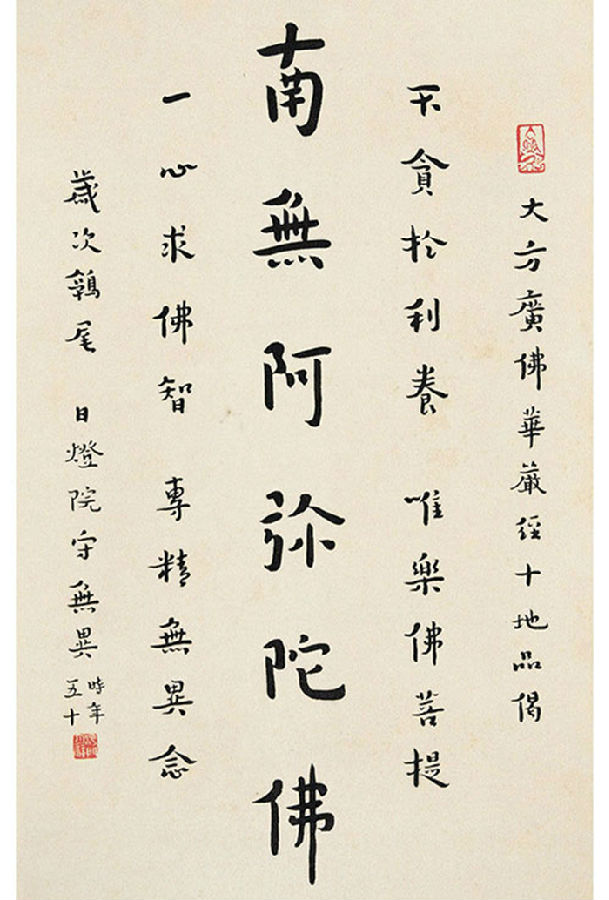 大方廣佛華嚴經十地品偈
不貪於利養 唯樂佛菩提
南無阿弥陀佛
一心求佛智 專精無異念
歲次鶉尾 日燈院守無異
時年
五十